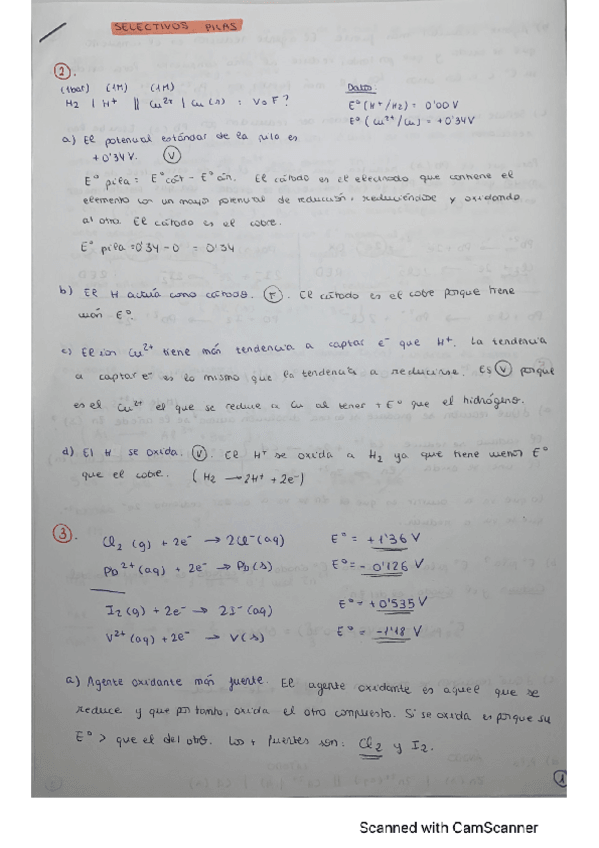 SELECTIVOS PILAS
2.
(1bar) (1M) (1M)
H2 | H+ || Cu2+ | Cu(s) : V o F?
Datos:
E°(H+/H2) = 0'00V
E°(Cu2+/Cu) = +0'34V
a) El potencial estándar de la pila es
+0'34V. (V)
E° pila = E° cát - E° án. El cátodo es el electrodo que contiene el
elemento con un mayor potencial de reducción, reduciéndose y oxidando
al otro. El cátodo es el cobre.
E° pila = 0'34 - 0 = 0'34
b) El H actúa como cátodo. (F). El cátodo es el cobre porque tiene
E°.
c) El ion Cu2+ tiene más tendencia a captar e- que H+. La tendencia
a captar e- es lo mismo que la tendencia a reducirse. Es (V) porque
es el Cu2+ el que se reduce a Cu al tener + E° que el hidrógeno.
d) El H se oxida. (V). El H+ se oxida a H2 ya que tiene menos E°
que el cobre. (H2 → 2H+ + 2e-)
3.
Cl2 (g) + 2e- → 2Cl-(aq) E° = +1'36 V
Pb2+(aq) + 2e- → Pb(s) E° = -0'126 V
I2(g) + 2e- → 2I-(aq) E° = +0'535 V
V2+(aq) + 2e- → V(s) E° = -1'18 V
a) Agente oxidante más fuerte. El agente oxidante es aquel que se
reduce y que por tanto, oxida el otro compuesto. Si se oxida es porque su
E° > que el del otro. Los + fuertes son: Cl2 y I2.
1
Scanned with CamScanner